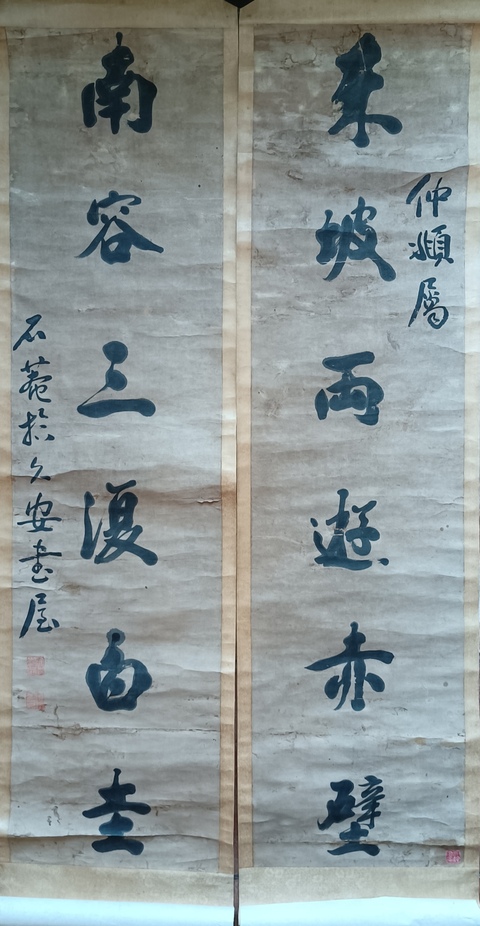 仲頫屬
東坡兩遊赤壁
南容三復白圭
石菴於久安書屋